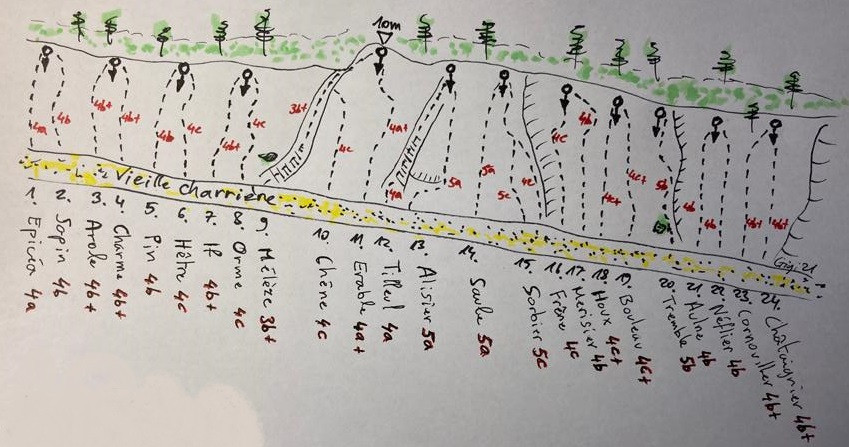 10m
4a
4b
4b+
4b+
4b
4c
4b+
4c
3b+
4c
4a+
4a
5a
5a
5c
4c
4c
4b
4c+
4c+
5b
4b
4b
4b+
4b+
Vieille charrière
Gigi 21
1. Epicéa 4a
2. Sapin 4b
3. Arole 4b+
4. Charme 4b+
5. Pin 4b
6. Hêtre 4c
7. If 4b+
8. Orme 4c
9. Mélèze 3b+
10. Chêne 4c
11. Erable 4a+
12. Tilleul 4a
13. Alisier 5a
14. Saule 5a
15. Sorbier 5c
16. Frêne 4c
17. Merisier 4b
18. Houx 4c+
19. Bouleau 4c+
20. Tremble 5b
21. Aulne 4b
22. Néflier 4b
23. Cornouiller 4b+
24. Châtaignier 4b+